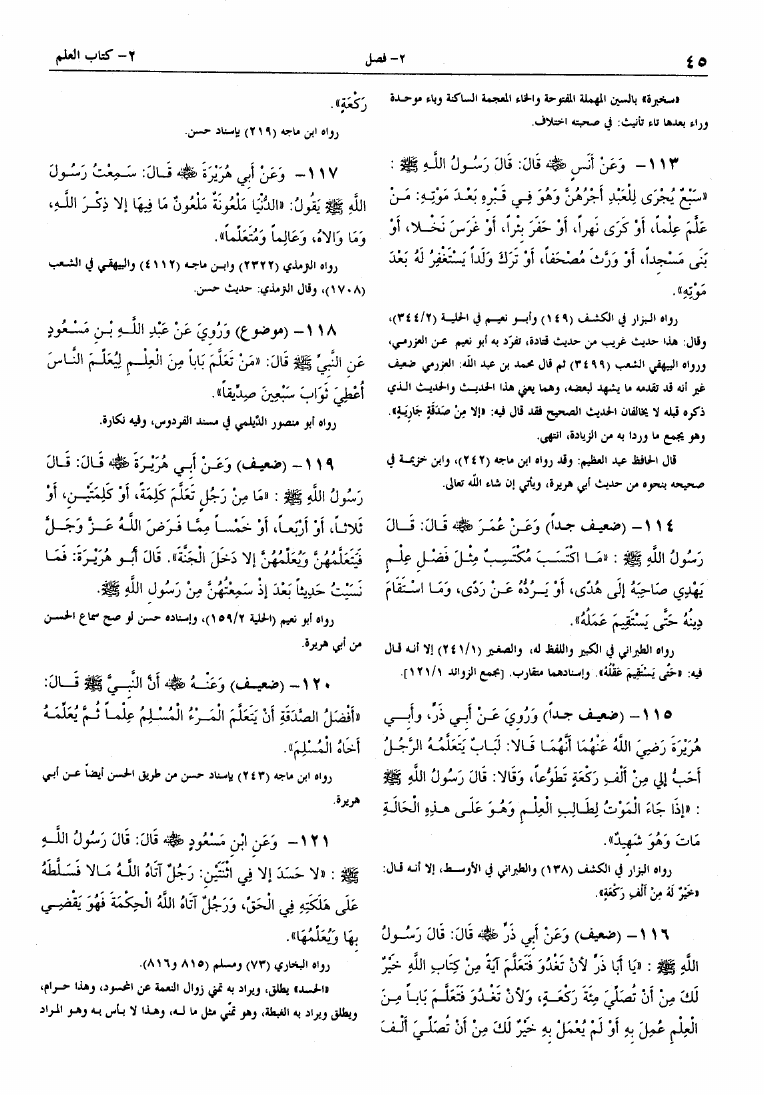 ٤٥
٢- فصل
٢- كتاب العلم
«سخبرة» بالسين المهملة المفتوحة والخاء المعجمة الساكنة وباء موحدة
وراء بعدها تاء تأنيث: في صحبته اختلاف.
١١٣- وَعَنْ أَنَسٍ ﷺ قَالَ: قَالَ رَسُولُ اللَّهِ ﷺ :
«سَبْعٌ يُجْرَى لِلْعَبْدِ أَجْرُهُنَّ وَهُوَ فِي قَبْرِهِ بَعْدَ مَوْتِهِ: مَنْ
عَلَّمَ عِلْماً، أَوْ كَرَى نَهراً، أَوْ حَفَرَ بِئْراً، أَوْ غَرَسَ نَخْلا، أَوْ
بَنَى مَسْجِداً، أَوْ وَرَّثَ مُصْحَفاً، أَوْ تَرَكَ وَلَداً يَسْتَغْفِرُ لَهُ بَعْدَ
مَوْتِهِ».
رواه البزار في الكشف (١٤٩) وأبو نعيم في الحلية (٣٤٤/٢)،
وقال: هذا حديث غريب من حديث قتادة، تفرّد به أبو نعيم عن العزرمي،
ورواه البيهقي الشعب (٣٤٩٩) ثم قال محمد بن عبد الله: العزرمي ضعيف
غير أنه قد تقدمه ما يشهد لبعضه، وهما يعني هذا الحديث والحديث الذي
ذكره قبله لا يخالفان الحديث الصحيح فقد قال فيه: «إلا مِنْ صَدَقَةٍ جَارِيَةٍ».
وهو يجمع ما وردا به من الزيادة، انتهى.
قال الحافظ عبد العظيم: وقد رواه ابن ماجه (٢٤٢)، وابن خزيمة في
صحيحه بنحوه من حديث أبي هريرة، ويأتي إن شاء الله تعالى.
١١٤- (ضعيف جداً) وَعَنْ عُمَرَ ﷺ قَالَ: قَالَ
رَسُولُ اللَّهِ ﷺ : «مَا اكْتَسَبَ مُكْتَسِبٌ مِثْلَ فَضْلِ عِلْمٍ
يَهْدِي صَاحِبَهُ إِلَى هُدًى، أَوْ يَرُدُّهُ عَنْ رَدًى، وَمَا اسْتَقَامَ
دِينُهُ حَتَّى يَسْتَقِيمَ عَمَلُهُ».
رواه الطبراني في الكبير واللفظ له، والصغير (٢٤١/١) إلا أنه قال
فيه: «حَتَّى يَسْتَقِيمَ عَقْلُهُ». وإسنادهما متقارب. [مجمع الزوائد ١٢١/١].
١١٥- (ضعيف جداً) وَرُوِيَ عَنْ أَبِي ذَرٍّ، وأَبِي
هُرَيْرَةَ رَضِيَ اللَّهُ عَنْهُمَا أَنَّهُمَا قَالا: لَبَابٌ يَتَعَلَّمُهُ الرَّجُلُ
أَحَبُّ إِلي مِنْ أَلْفِ رَكْعَةٍ تَطَوُّعاً، وَقَالا: قَالَ رَسُولُ اللَّهِ ﷺ
: «إِذَا جَاءَ الْمَوْتُ لِطَالِبِ الْعِلْمِ وَهُوَ عَلَى هذِهِ الْحَالَةِ
مَاتَ وَهُوَ شَهِيدٌ».
رواه البزار في الكشف (١٣٨) والطبراني في الأوسط، إلا أنه قال:
«خَيْرٌ لَهُ مِنْ أَلْفِ رَكْعَةٍ».
١١٦- (ضعيف) وَعَنْ أَبِي ذَرٍّ ﷺ قَالَ: قَالَ رَسُولُ
اللَّهِ ﷺ : «يَا أَبَا ذَرٍّ لأنْ تَغْدُوَ فَتَعَلَّمَ آيَةً مِنْ كِتَابِ اللَّهِ خَيْرٌ
لَكَ مِنْ أَنْ تُصَلّيَ مِئَةَ رَكْعَةٍ، وَلأنْ تَغْدُوَ فَتَعَلَّمَ بَاباً مِنَ
الْعِلْمِ عُمِلَ بِهِ أَوْ لَمْ يُعْمَلْ بِهِ خَيْرٌ لَكَ مِنْ أَنْ تُصَلّيَ أَلْفَ
رَكْعَةٍ».
رواه ابن ماجه (٢١٩) بإسناد حسن.
١١٧- وَعَنْ أَبِي هُرَيْرَةَ ﷺ قَالَ: سَمِعْتُ رَسُولَ
اللَّهِ ﷺ يَقُولُ: «الدُّنْيَا مَلْعُونَةٌ مَلْعُونٌ مَا فِيهَا إلا ذِكْرَ اللَّهِ،
وَمَا وَالاهُ، وَعَالِماً وَمُتَعَلِّماً».
رواه الترمذي (٢٣٢٢) وابن ماجه (٤١١٢) والبيهقي في الشعب
(١٧٠٨)، وقال الترمذي: حديث حسن.
١١٨- (موضوع) وَرُوِيَ عَنْ عَبْدِ اللَّهِ بْنِ مَسْعُودٍ
عَنِ النَّبِيِّ ﷺ قَالَ: «مَنْ تَعَلَّمَ بَاباً مِنَ الْعِلْمِ لِيُعَلِّمَ النَّاسَ
أُعْطِيَ ثَوَابَ سَبْعِينَ صِدِّيقاً».
رواه أبو منصور الدّيلمي في مسند الفردوس، وفيه نكارة.
١١٩- (ضعيف) وَعَنْ أَبِي هُرَيْرَةَ ﷺ قَالَ: قَالَ
رَسُولُ اللَّهِ ﷺ : «مَا مِنْ رَجُلٍ تَعَلَّمَ كَلِمَةً، أَوْ كَلِمَتَيْنِ، أَوْ
ثَلاثاً، أَوْ أَرْبَعاً، أَوْ خَمْساً مِمَّا فَرَضَ اللَّهُ عَزَّ وَجَلَّ
فَيَتَعَلَّمُهُنَّ وَيُعَلِّمُهُنَّ إلا دَخَلَ الْجَنَّةَ». قَالَ أَبُو هُرَيْرَةَ: فَمَا
نَسَيْتُ حَدِيثاً بَعْدَ إِذْ سَمِعْتُهُنَّ مِنْ رَسُولِ اللَّهِ ﷺ.
رواه أبو نعيم (الحلية ١٥٩/٢)، وإسناده حسن لو صح سماع الحسن
من أبي هريرة.
١٢٠- (ضعيف) وَعَنْهُ ﷺ أَنَّ النَّبِيَّ ﷺ قَالَ:
«أَفْضَلُ الصَّدَقَةِ أَنْ يَتَعَلَّمَ الْمَرْءُ الْمُسْلِمُ عِلْماً ثُمَّ يُعَلِّمَهُ
أَخَاهُ الْمُسْلِمَ».
رواه ابن ماجه (٢٤٣) بإسناد حسن من طريق الحسن أيضاً عن أبي
هريرة.
١٢١- وَعَنِ ابْنِ مَسْعُودٍ ﷺ قَالَ: قَالَ رَسُولُ اللَّهِ
ﷺ : «لا حَسَدَ إلا فِي اثْنَتَيْنِ: رَجُلٌ آتَاهُ اللَّهُ مَالا فَسَلَّطَهُ
عَلَى هَلَكَتِهِ فِي الْحَقِّ، وَرَجُلٌ آتَاهُ اللَّهُ الْحِكْمَةَ فَهُوَ يَقْضِي
بِهَا وَيُعَلِّمُهَا».
رواه البخاري (٧٣) ومسلم (٨١٥ و٨١٦).
«الحسد» يطلق، ويراد به تمني زوال النعمة عن المحسود، وهذا حرام،
ويطلق ويراد به الغبطة، وهو تمنّي مثل ما له، وهذا لا بأس به وهو المراد